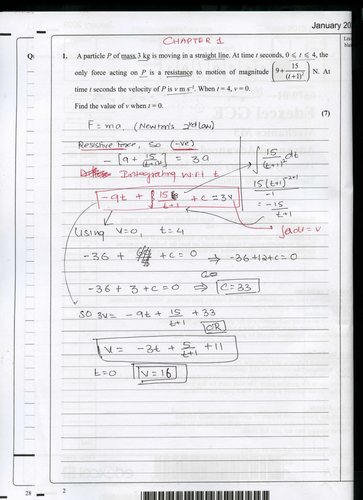 January 20
CHAPTER 1
1. A particle P of mass 3 kg is moving in a straight line. At time t seconds, 0 ⩽ t ⩽ 4, the
only force acting on P is a resistance to motion of magnitude (9 + 15/(t+1)²) N. At
time t seconds the velocity of P is v m s⁻¹. When t = 4, v = 0.
Find the value of v when t = 0.
(7)
F = ma (Newton's 2nd law)
Resistive force, so (-ve)
- [9 + 15/(t+1)²] = 3a
Integrating w.r.t t
∫ 15/(t+1)² dt
15(t+1)⁻²⁺¹/-1
= -15/t+1
-9t + 15/t+1 + c = 3v
∫a dt = v
Using v=0, t=4
-36 + + c = 0 ⇒ -36+12+c=0
-36 + 3 + c = 0 ⇒ C=33
so 3v = -9t + 15/t+1 + 33
OR
v = -3t + 5/t+1 + 11
t=0 v=16
28
2